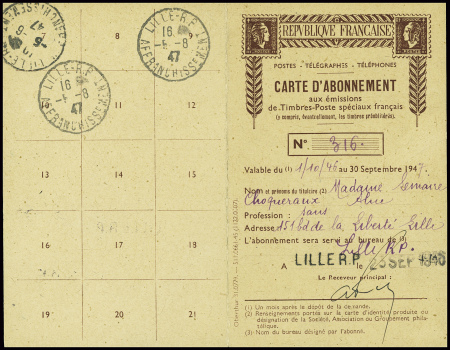 LILLE-R.P.
16
-6-8
47
AFFRANCHISSEMENT
8
LILLE-R.P.
16
-6-8
47
AFFRANCHISSEMENT
LILLE-R.P.
16
-6-8
47
AFFRANCHISSEMENT
10
11
12
13
14
15
16
17
18
19
20
21
REPVBLIQVE FRANÇAISE
POSTES - TÉLÉGRAPHES - TÉLÉPHONES
CARTE D'ABONNEMENT
aux émissions
de Timbres-Poste spéciaux français
(y compris, éventuellement, les timbres préoblitérés).
N° 316
Valable du (1) 1/10/46 au 30 Septembre 1947.
Nom et prénoms du titulaire (2) Madame Lemaire
Choqueraux
Profession : sans
Adresse 151 bd de la Liberté Lille
L'abonnement sera servi au bureau de (3)
Lille R.P.
A LILLE R.P. le 23 SEP 1946
Le Receveur principal :
(1) Un mois après le dépôt de la demande.
(2) Renseignements portés sur la carte d'identité produite ou
désignation de la Société, Association ou Groupement phila-
télique.
(3) Nom du bureau désigné par l'abonné.